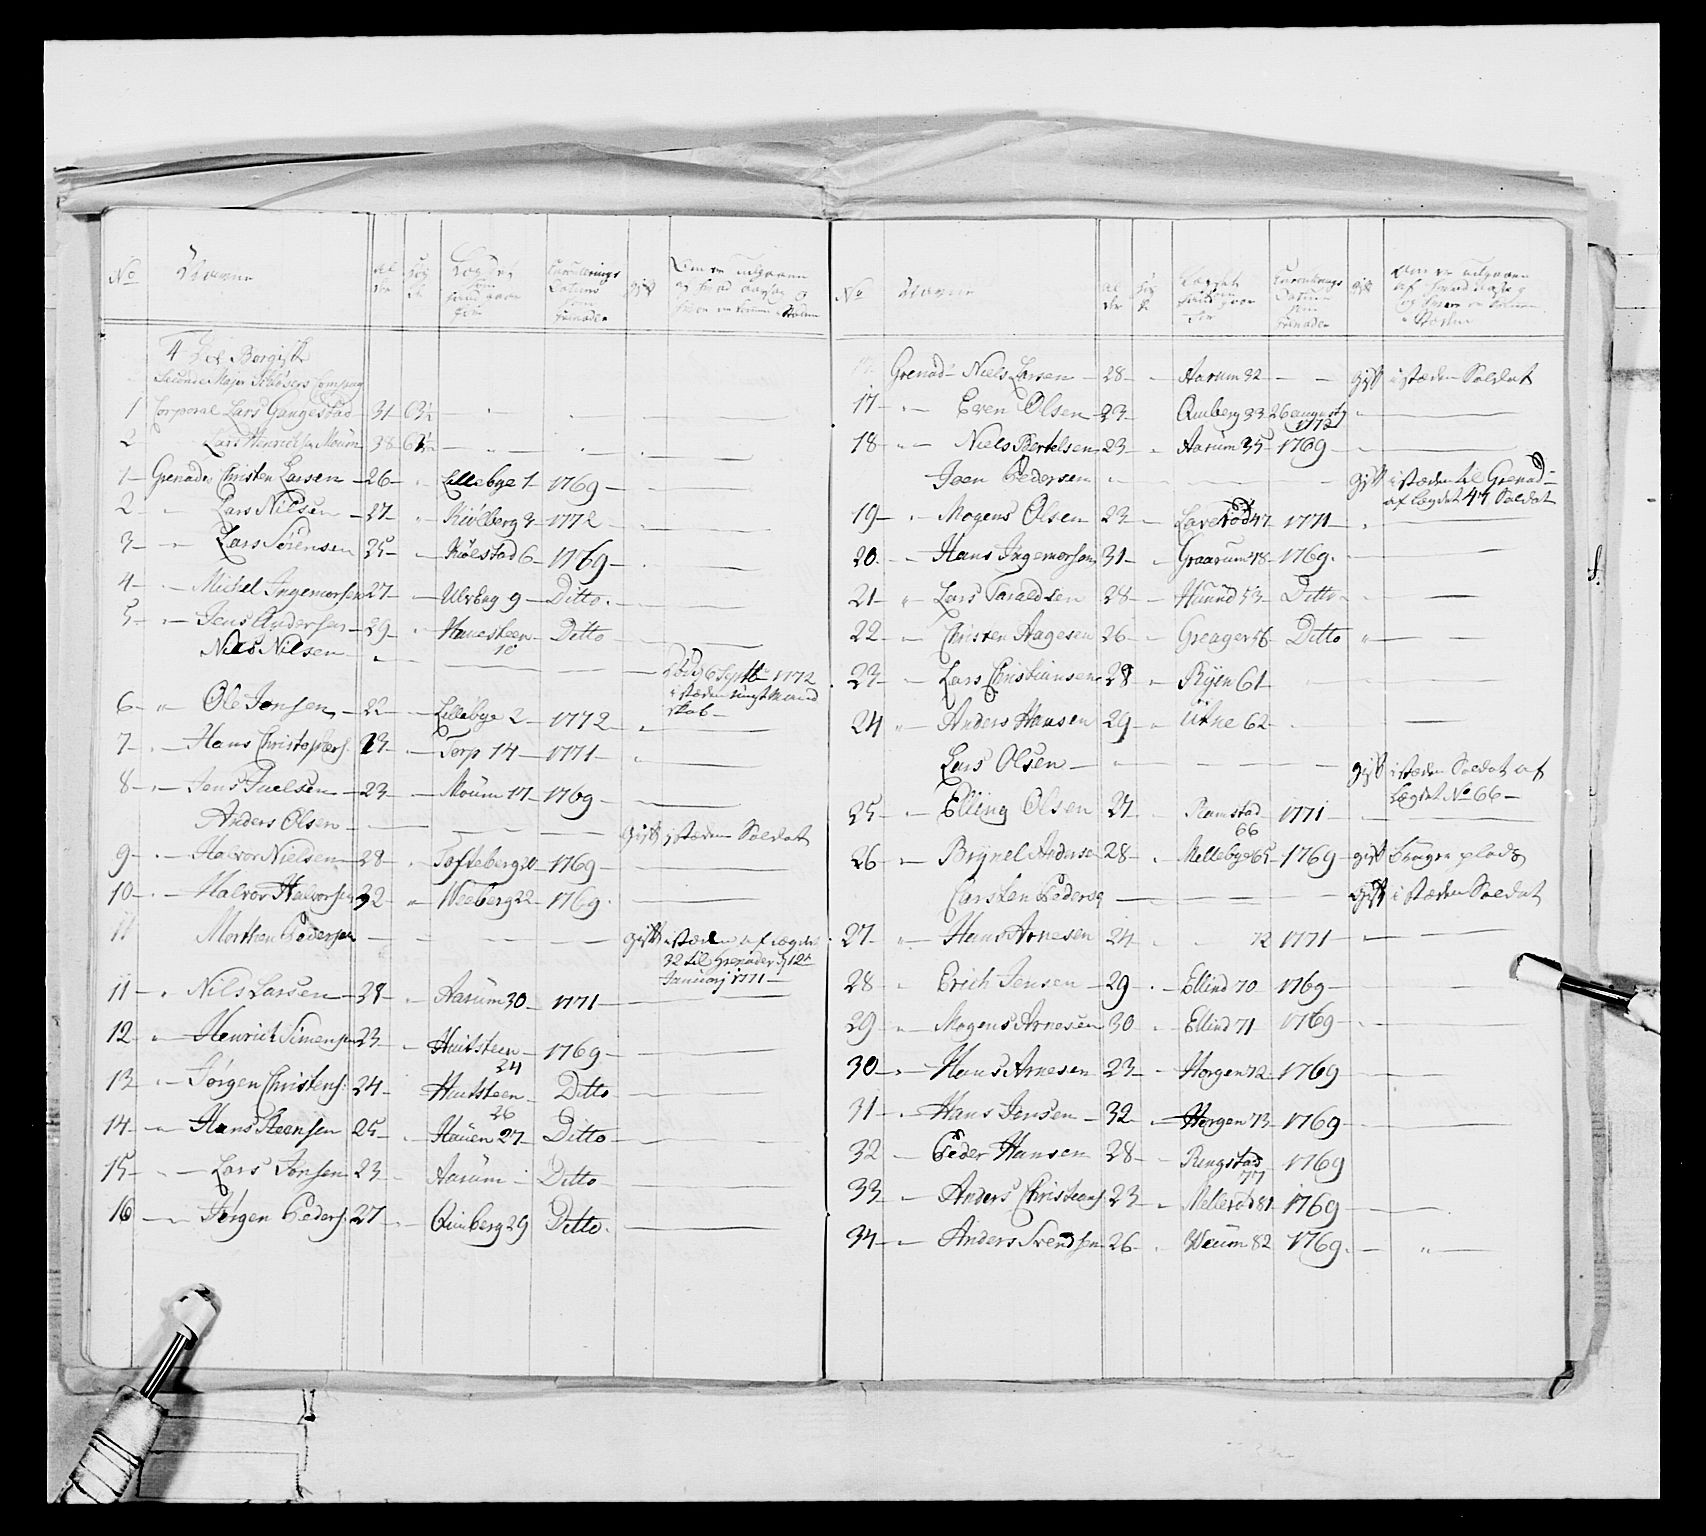 No Navne
4 De Borgiste
Seconde Major Compag
1 Corporal Lars Gangestad 31 63½
2 Lars Hinrichsen Moum 38
1 Grenader Christen Larsen 26 Lillebye 1 1769
2 Lars Nilsen 27 Kiölberg 3 1772
3 Lars Sörensen 25 Kiölstad 6 1769
4 Michel Ingemorsen 27 9 Ditto
5 Jens Andersen 29 Hauesteen 10 Ditto
Nils Nilsen Död 6 Septb 1772
i stæden ungt Mand
skab
6 Ole Jonsen 22 Lillebye 2 1772
7 Hans Christophers: 23 Torp 14 1771
8 Jens Juelsen 23 Moum 17 1769
Anders Olsen gift i stæden Soldat
9 Halvor Nielsen 28 Tofteberg 20 1769
10 Halvor Halvorsen 32 Weeberg 22 1769
11 Morthen Pedersen gift i stæden af lægdet
32 til Grenader d 12t
Januarj 1771
11 Nils Larsen 28 Aarum 30 1771
12 Henrich Simensen 23 Huitsteen 24 1769
13 Jörgen Christens: 24 Huitsteen 26 Ditto
14 Hans Steensen 25 Hauen 27 Ditto
15 Lars Jonsen 23 Aarum Ditto
16 Jörgen Peders: 27 Quiberg 29 Ditto
No Navne
Grenad Niels Larsen 28 Aarum 32 gift i stæden Soldat
17 Even Olsen 23 33 26 augusty
1772
18 Niels Bertelsen 23 Aarum 35 1769
Joen Pedersen gift i stæden til Grenad
af lægdet 47 Soldat
19 Mogens Olsen 23 47 1771
20 Hans Ingemorsen 31 Graarum 48 1769
21 Lars Taraldsen 28 Hunnd 53 Ditto
22 Christen Aagesen 26 Greager 56 Ditto
23 Lars Christiansen 28 Ryen 61
24 Anders Hansen 29 62
Lars Olsen gift i stæden Soldat af
Lægdet No 66
25 Elling Olsen 27 Ramstad 66 1771
26 Brynel Anderse 28 Mellebye 65 1769 gift plads
Carsten Peders gift i stæden Soldat
27 Hans Arnesen 24 72 1771
28 Erich Jensen 29 Ellind 70 1769
29 Mogens Arnesen 30 Ellind 71 1769
30 Hans Arnesen 23 Horgen 72 1769
31 Hans Jonsen 32 Horgen 73 1769
32 Peder Hansen 28 Ringstad 77 1769
33 Anders Christians: 23 Mellerød 81 1769
34 Anders Svendsen 26 Weum 82 1769